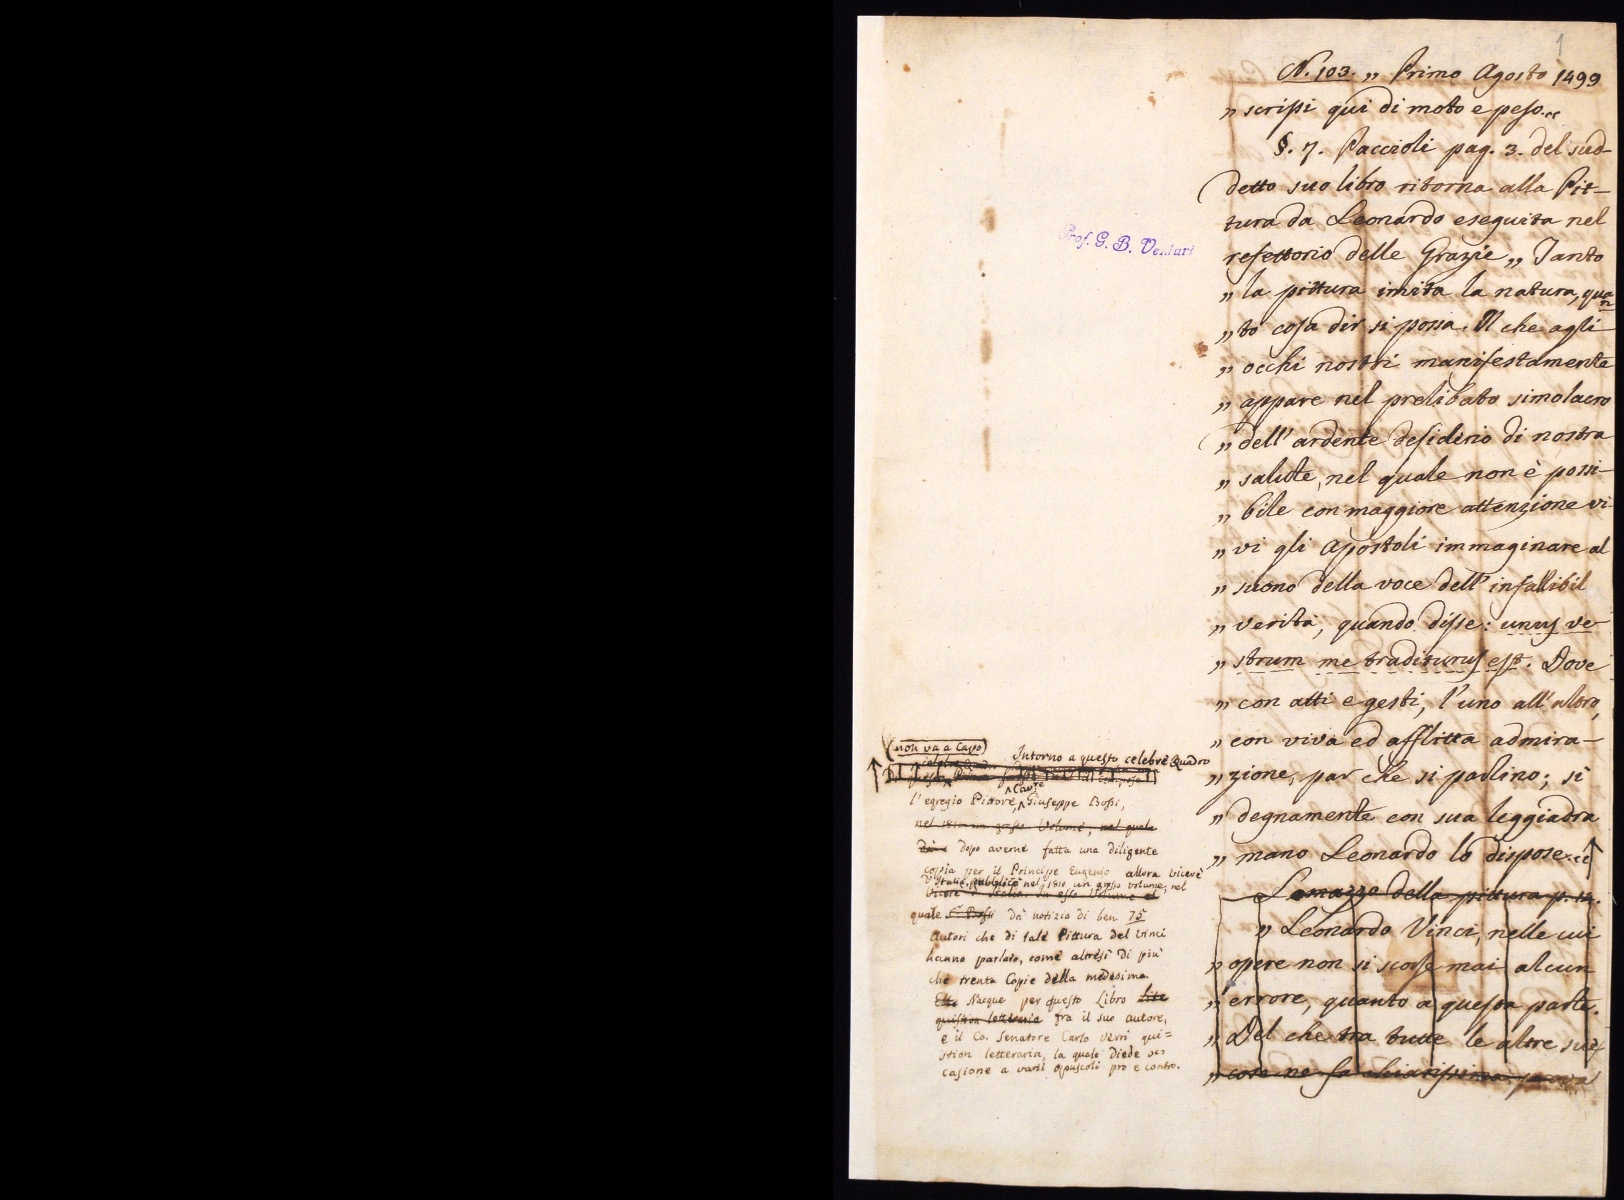 1
N. 103. „ Primo Agosto 1499
„ scrissi qui di moto e peso.“
§. 7. Paccioli pag. 3. del sud-
detto suo libro ritorna alla Pit-
tura da Leonardo eseguita nel
refettorio delle Grazie „ Tanto
„ la pittura imita la natura, quan
„ to cosa dir si possa. Il che agli
„ occhi nostri manifestamente
„ appare nel prelibato simolacro
„ dell' ardente desiderio di nostra
„ salute, nel quale non è possi-
„ bile con maggiore attenzione vi
„ vi gli Apostoli immaginare al
„ suono della voce dell' infallibil
„ verità, quando disse: unus ve-
„ strum me traditurus est. Dove
„ con atti e gesti, l'uno all'altro,
„ con viva ed afflitta admira-
„ zione, par che si parlino; sì
„ degnamente con sua leggiadra
„ mano Leonardo lo dispose.“
Lomazzo della pittura p. 
„ Leonardo Vinci, nelle cui
„ opere non si scorse mai alcun
„ errore, quanto a questa parte.
„ Del che tra tutte le altre sue
„ cose ne fa chiarissima prova
Prof. G. B. Venturi
(non va a Capo)
Intorno a questo celebre Quadro
l'egregio Pittore Cav.re Giuseppe Bossi,
nel 1810 un grosso Volume, nel quale
dopo averne fatta una diligente
copia per il Principe Eugenio allora Vicerè
d'Italia, pubblicò nel 1810 un grosso volume, nel
quale dà notizio di ben 75
Autori che di tale Pittura del Vinci
hanno parlato, come altresì di più
che trenta Copie della medesima.
Nacque per questo Libro lite
quistion letteraria fra il suo autore,
e il Co. Senatore Carlo Verri qui=
stion letteraria, la quale diede oc=
casione a varii opuscoli pro e contro.